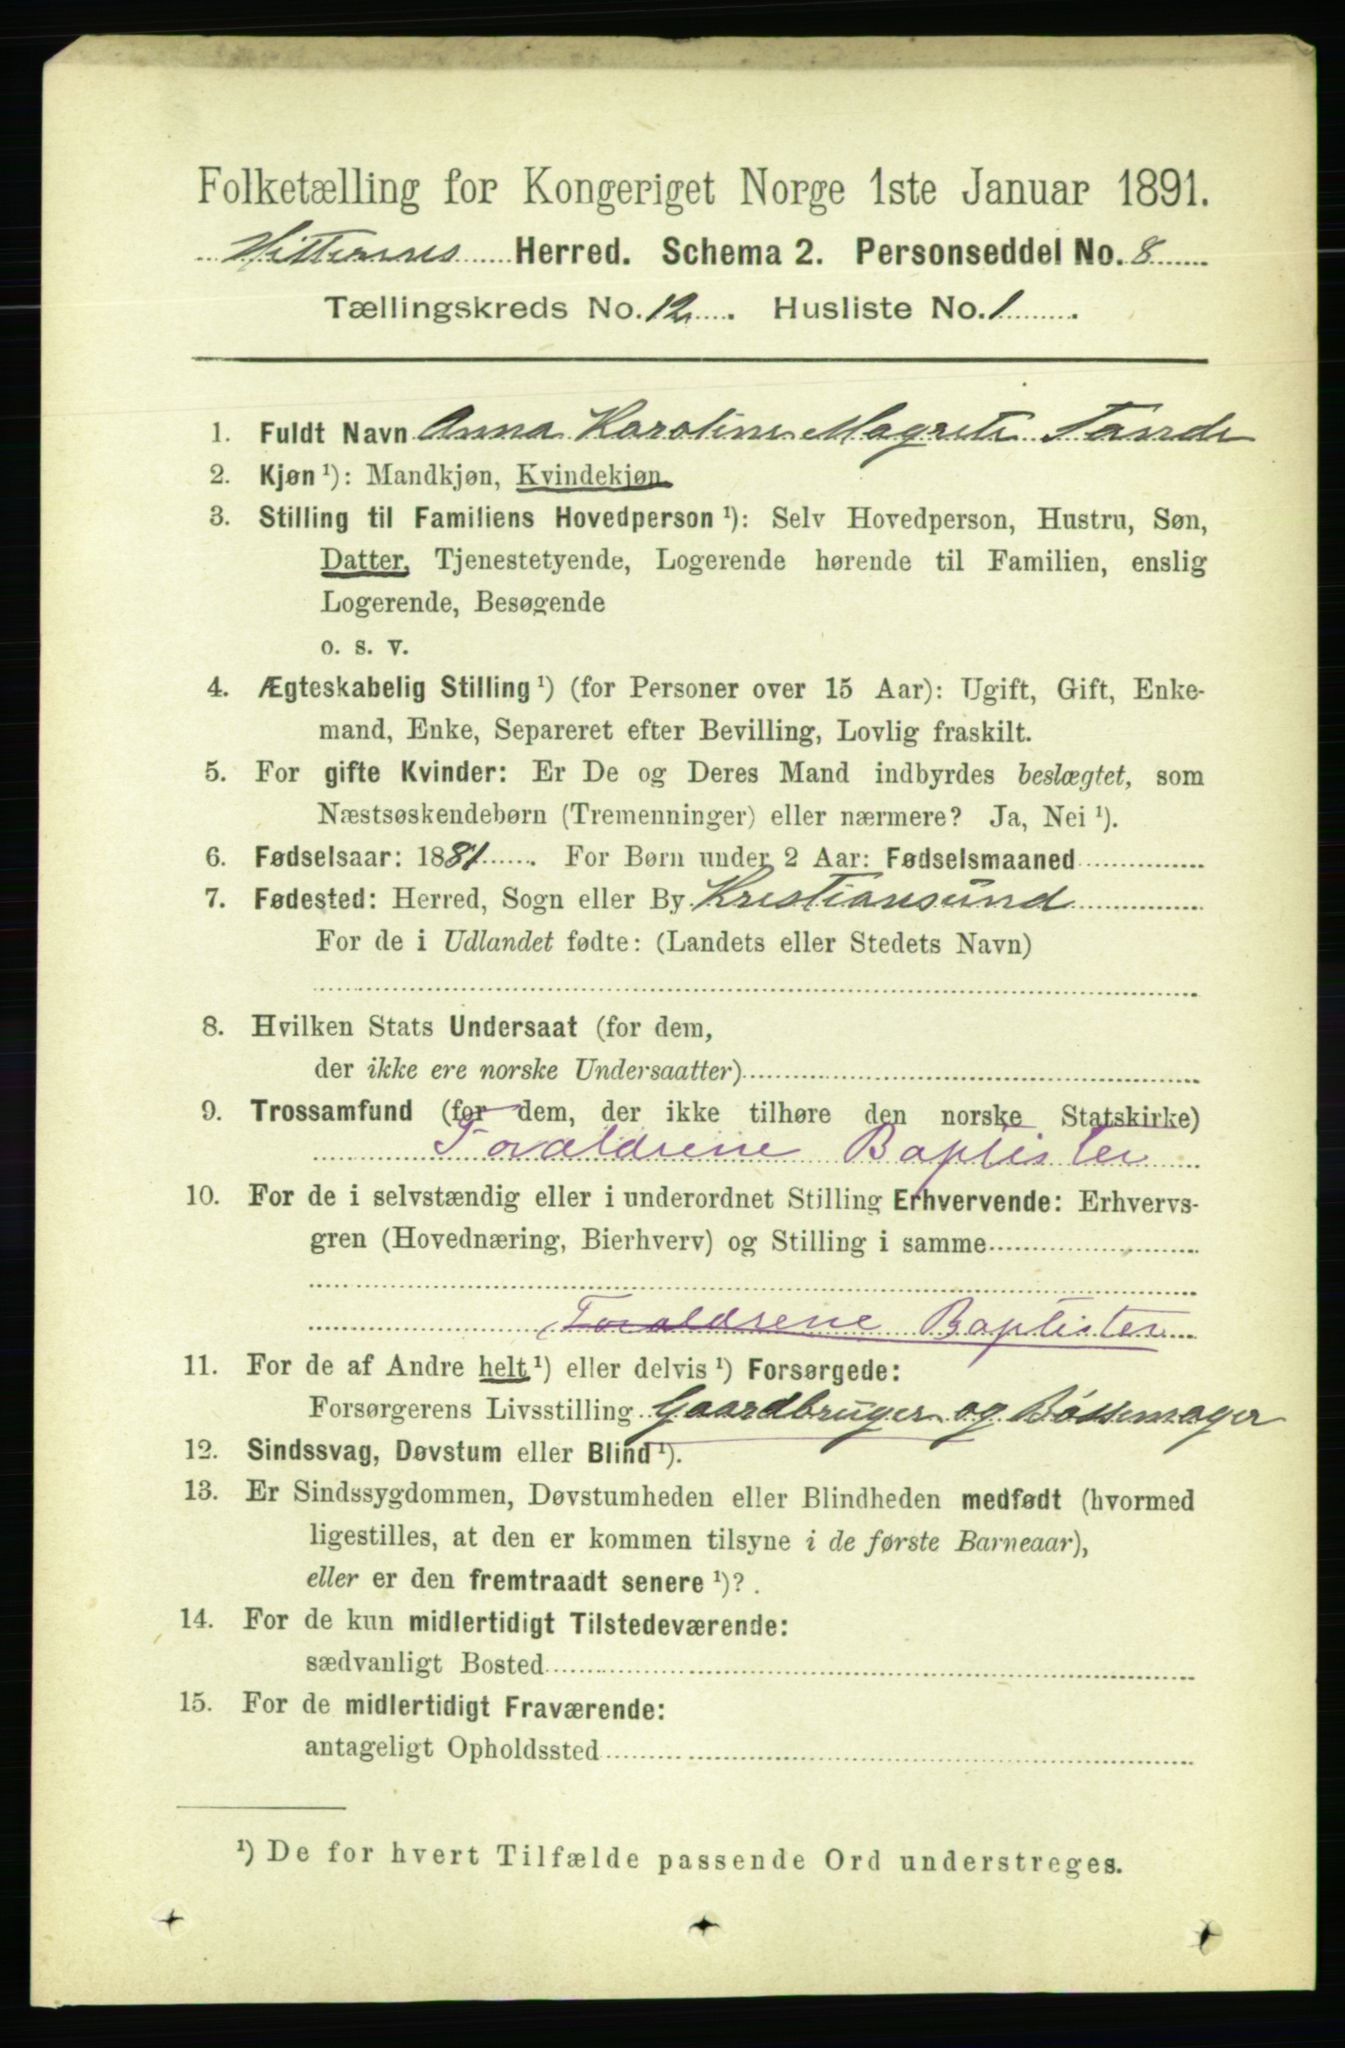 Folketælling for Kongeriget Norge 1ste Januar 1891.
Hitternes Herred. Schema 2. Personseddel No. 8
Tællingskreds No. 12. Husliste No. 1.
1. Fuldt Navn Anna Karoline Magrete Tande
2. Kjøn ¹): Mandkjøn, Kvindekjøn.
3. Stilling til Familiens Hovedperson ¹): Selv Hovedperson, Hustru, Søn,
Datter, Tjenestetyende, Logerende hørende til Familien, enslig
Logerende, Besøgende
o. s. v.
4. Ægteskabelig Stilling ¹) (for Personer over 15 Aar): Ugift, Gift, Enke-
mand, Enke, Separeret efter Bevilling, Lovlig fraskilt.
5. For gifte Kvinder: Er De og Deres Mand indbyrdes beslægtet, som
Næstsøskendebørn (Tremenninger) eller nærmere? Ja, Nei ¹).
6. Fødselsaar: 1881. For Børn under 2 Aar: Fødselsmaaned
7. Fødested: Herred, Sogn eller By Kristiansund
For de i Udlandet fødte: (Landets eller Stedets Navn)
8. Hvilken Stats Undersaat (for dem,
der ikke ere norske Undersaatter)
9. Trossamfund (for dem, der ikke tilhøre den norske Statskirke)
Forældrene Baptister
10. For de i selvstændig eller i underordnet Stilling Erhvervende: Erhvervs-
gren (Hovednæring, Bierhverv) og Stilling i samme
Forældrene Baptister
11. For de af Andre helt ¹) eller delvis ¹) Forsørgede:
Forsørgerens Livsstilling Gaardbruger og Bøssemager
12. Sindssvag, Døvstum eller Blind ¹).
13. Er Sindssygdommen, Døvstumheden eller Blindheden medfødt (hvormed
ligestilles, at den er kommen tilsyne i de første Barneaar),
eller er den fremtraadt senere ¹)?.
14. For de kun midlertidigt Tilstedeværende:
sædvanligt Bosted
15. For de midlertidigt Fraværende:
antageligt Opholdssted
¹) De for hvert Tilfælde passende Ord understreges.